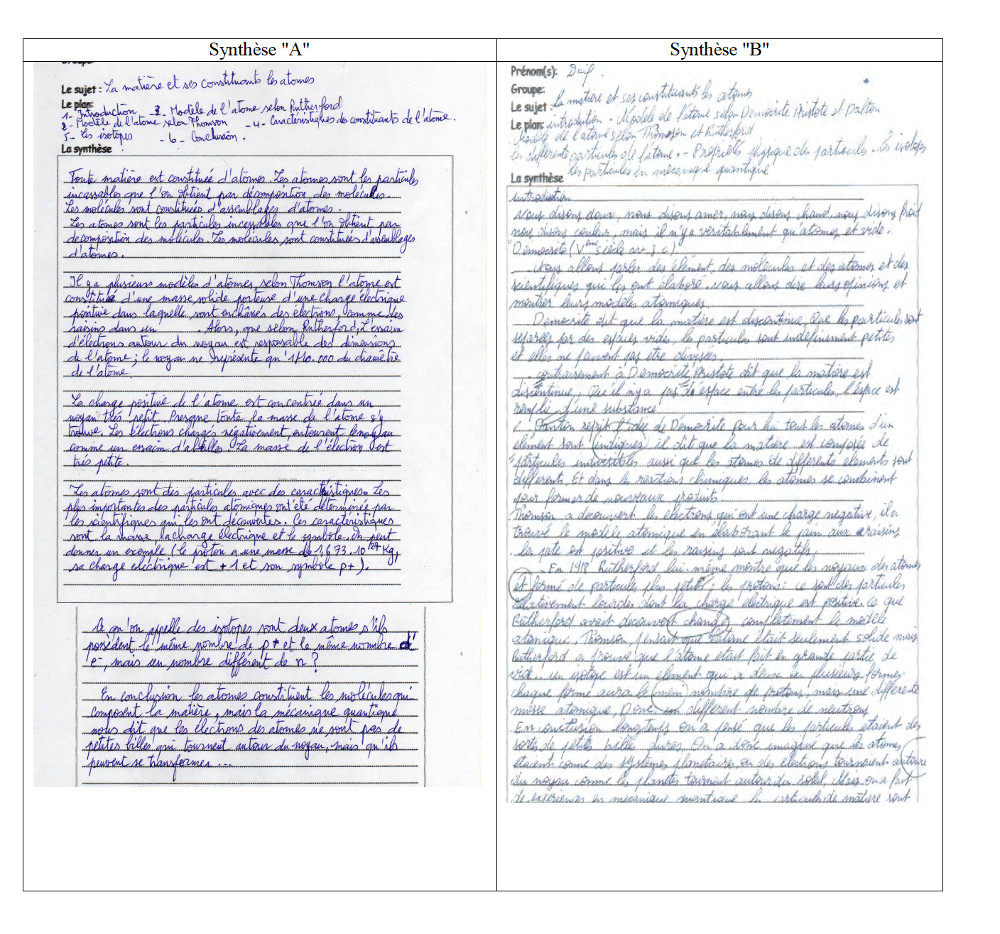 Synthèse "A"
Le sujet : La matière et ses constituants les atomes
Le plan:
1- Introduction - 3- Modèle de l'atome selon Rutherford
2- Modèle de l'atome selon Thomson - 4- Caractéristiques des constituants de l'atome.
5- Les isotopes - 6- Conclusion.
La synthèse
Toute matière est constituée d'atomes. Les atomes sont les particules
incassables que l'on obtient par décomposition des molécules.
Les molécules sont constituées d'assemblages d'atomes.
Les atomes sont les particules incassables que l'on obtient par
decomposition des molécules. Les molécules sont constituées d'assemblages
d'atomes.
Il y a plusieurs modèles d'atomes, selon Thomson l'atome est
constitué d'une masse solide porteuse d'une charge électrique
positive dans laquelle sont enchâssés des electrons, comme les
raisins dans un ... Alors, que selon Rutherford, l'essaim
d'électrons autour du noyau est responsable des dimensions
de l'atome ; le noyau ne représente qu'1/10.000 du diamètre
de l'atome.
La charge positive de l'atome est concentrée dans un
noyau très petit. Presque toute la masse de l'atome s'y
trouve. Les électrons chargés négativement, entourent le noyau
comme un essaim d'abeilles. La masse de l'électron est
très petite.
Les atomes sont des particules avec des caractéristiques. Les
plus importantes des particules atomiques ont été déterminées par
les scientifiques qui les ont découvertes. Ces caractéristiques
sont la masse, la charge électrique et le symbole. On peut
donner un exemple (le proton a une masse de 1,673.10 Kg,
sa charge electrique est +1 et son symbole p+).
Ce qu'on appelle des isotopes sont deux atomes s'ils
possèdent le même nombre de p+ et le même nombre d'
e-, mais un nombre différent de n ?
En conclusion les atomes constituent les molécules qui
composent la matière, mais la mécanique quantique
nous dit que les électrons des atomes ne sont pas de
petites billes qui tournent autour du noyau, mais qu'ils
peuvent se transformer ...
Synthèse "B"
Prénom(s):
Groupe:
Le sujet : la matière et ses constituants les atomes
Le plan: introduction - Modèle de l'atome selon Democrite Aristote et Dalton
Modèle de l'atome selon Thomson et Rutherford
les différente particules de l'atome - Propriétés physique des particules - les isotopes
les particules en mécanique quantique
La synthèse
introduction
Nous disons doux, nous disons amer, nous disons chaud, nous disons froid
nous disons couleur, mais il n'y a véritablement qu'atomes et vide.
Démocrite (Vème siècle av. J.C.)
Nous allons parler des élément, des molécules et des atomes et des
scientifiques qui les ont élaboré. nous allons dire leurs opinions et
montrer leurs modèles atomiques.
Democrite dit que la matière est discontinue, que les particules sont
separées par des espaces vides, les particules sont indéfiniment petites
et elles ne peuvent pas être divisées.
contrairement à Democrite, Aristote dit que la matière est
discontinue, qu'il n'y a pas d'espace entre les particules, l'espace est
remplie d'une substance
Dalton reprit l'idée de Democrite pour lui tout les atomes d'un
élement sont il dit que la matière est composée de
particules indivisibles aussi que les atomes de différents élements sont
différents, et dans le réactions chimiques, les atomes se combinent
pour former de nouveaux produits.
Thomson a decouvert les electrons qui ont une charge negative, il a
trouvé le modèle atomique en élaborant le pain aux raisins
la pate est positive et les raisins sont negatifs.
En 1918 Rutherford lui-même montre que les noyaux des atomes
est formé de particules plus petites : les protons : ce sont des particules
relativement lourdes dont la charge electrique est positive. ce que
Rutherford avait decouvert changé complètement le modèle
atomique. Thomson pensait que l'atome était seulement solide mais
Rutherford a trouvé que l'atome etait fait en grande partie de
vide. un isotope est un element qui a deux ou plusieurs formes
chaque forme aura le même nombre de protons, mais une différente
masse atomique, Donc un different nombre de neutrons
En conclusion longtemps on a pensé que les particules étaient des
sorte de petites billes dures. On a donc imaginé que les atomes
étaient comme des systèmes planetaires, ou des electrons tournaient autour
du noyau comme les planètes tournent autour du soleil. Mais on a fait
de expériences en mecanique quantique les particules de matière sont